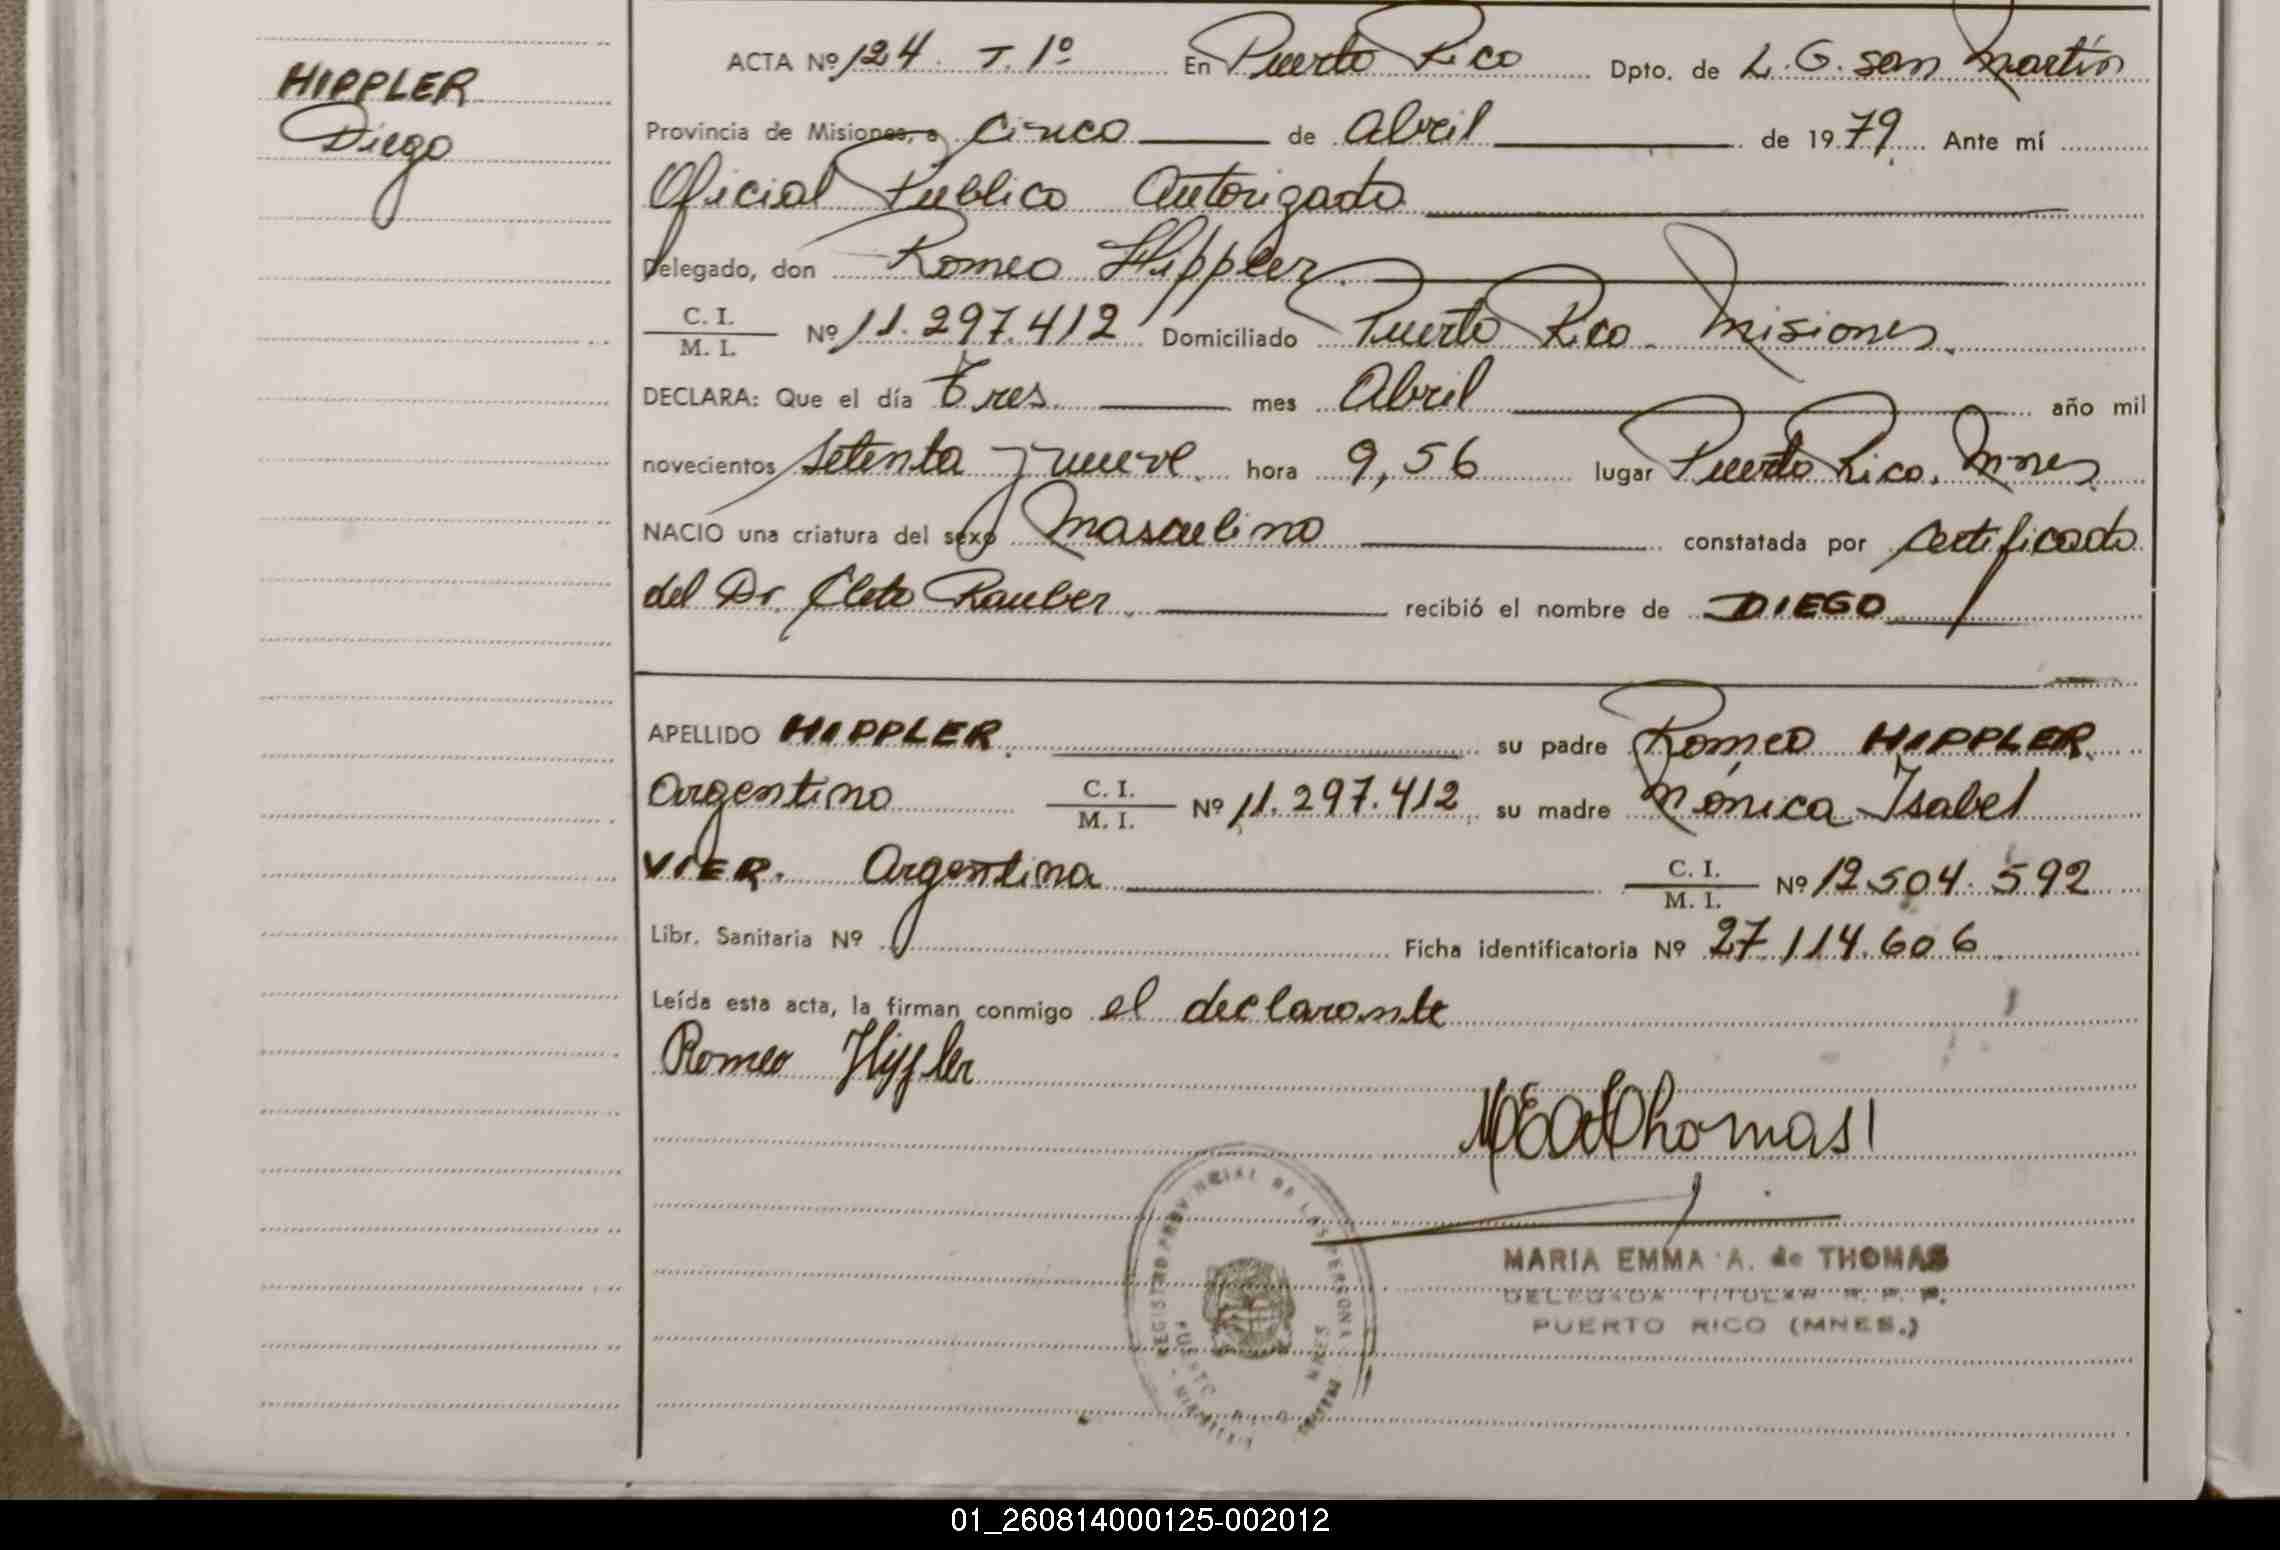 HIPPLER
Diego
ACTA Nº 124 T. 1º En Puerto Rico Dpto. de L. G. San Martín
Provincia de Misiones, a cinco de Abril de 1979 Ante mí
Oficial Público Autorizado
Delegado, don Romeo Hippler
C. I.
M. I. Nº 11.297.412 Domiciliado Puerto Rico. Misiones.
DECLARA: Que el día Tres mes Abril año mil
novecientos setenta y nueve hora 9,56 lugar Puerto Rico. Mnes
NACIO una criatura del sexo Masculino constatada por certificado
del Dr. Cleto Rauber. recibió el nombre de DIEGO
APELLIDO HIPPLER. su padre Romeo HIPPLER.
Argentino C. I.
M. I. Nº 11.297.412 su madre Mónica Isabel
VIER. Argentina C. I.
M. I. Nº 12.504.592
Libr. Sanitaria Nº Ficha identificatoria Nº 27.114.606
Leída esta acta, la firman conmigo el declarante
Romeo Hippler
MEAdThomas
REGISTRO PROVINCIAL DE LAS PERSONAS
MARIA EMMA A. de THOMAS
DELEGADA TITULAR R. P. P.
PUERTO RICO (MNES.)
01_260814000125-002012